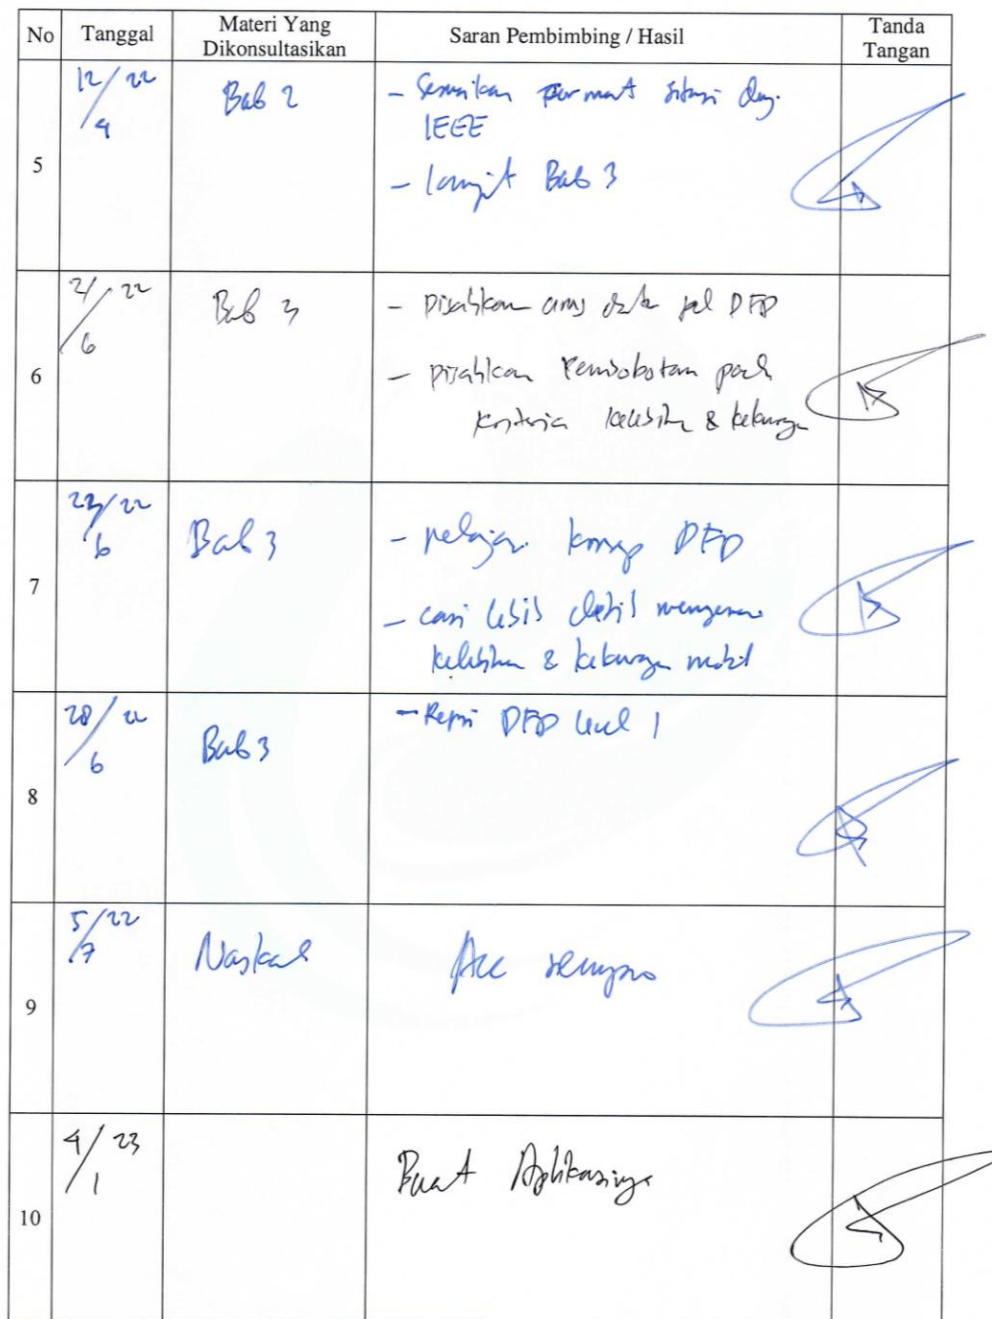 No Tanggal Materi Yang Dikonsultasikan Saran Pembimbing / Hasil Tanda Tangan
5 12/4 22 Bab 2 - Sesuaikan format sitasi dng.
IEEE
- lanjut Bab 3
6 21/6 22 Bab 3 - Pisahkan arus data DFD
- Pisahkan Pembobotan pada
kriteria kelebihan & kekurangan
7 6 22 Bab 3 - pelajari konsep DFD
- cari lebih detil mengenai
kelebihan & kekurangan mobil
8 28/6 22 Bab 3 - Revisi DFD level 1
9 5/7 22 Naskah Acc sempro
10 4/1 23 Buat Aplikasinya